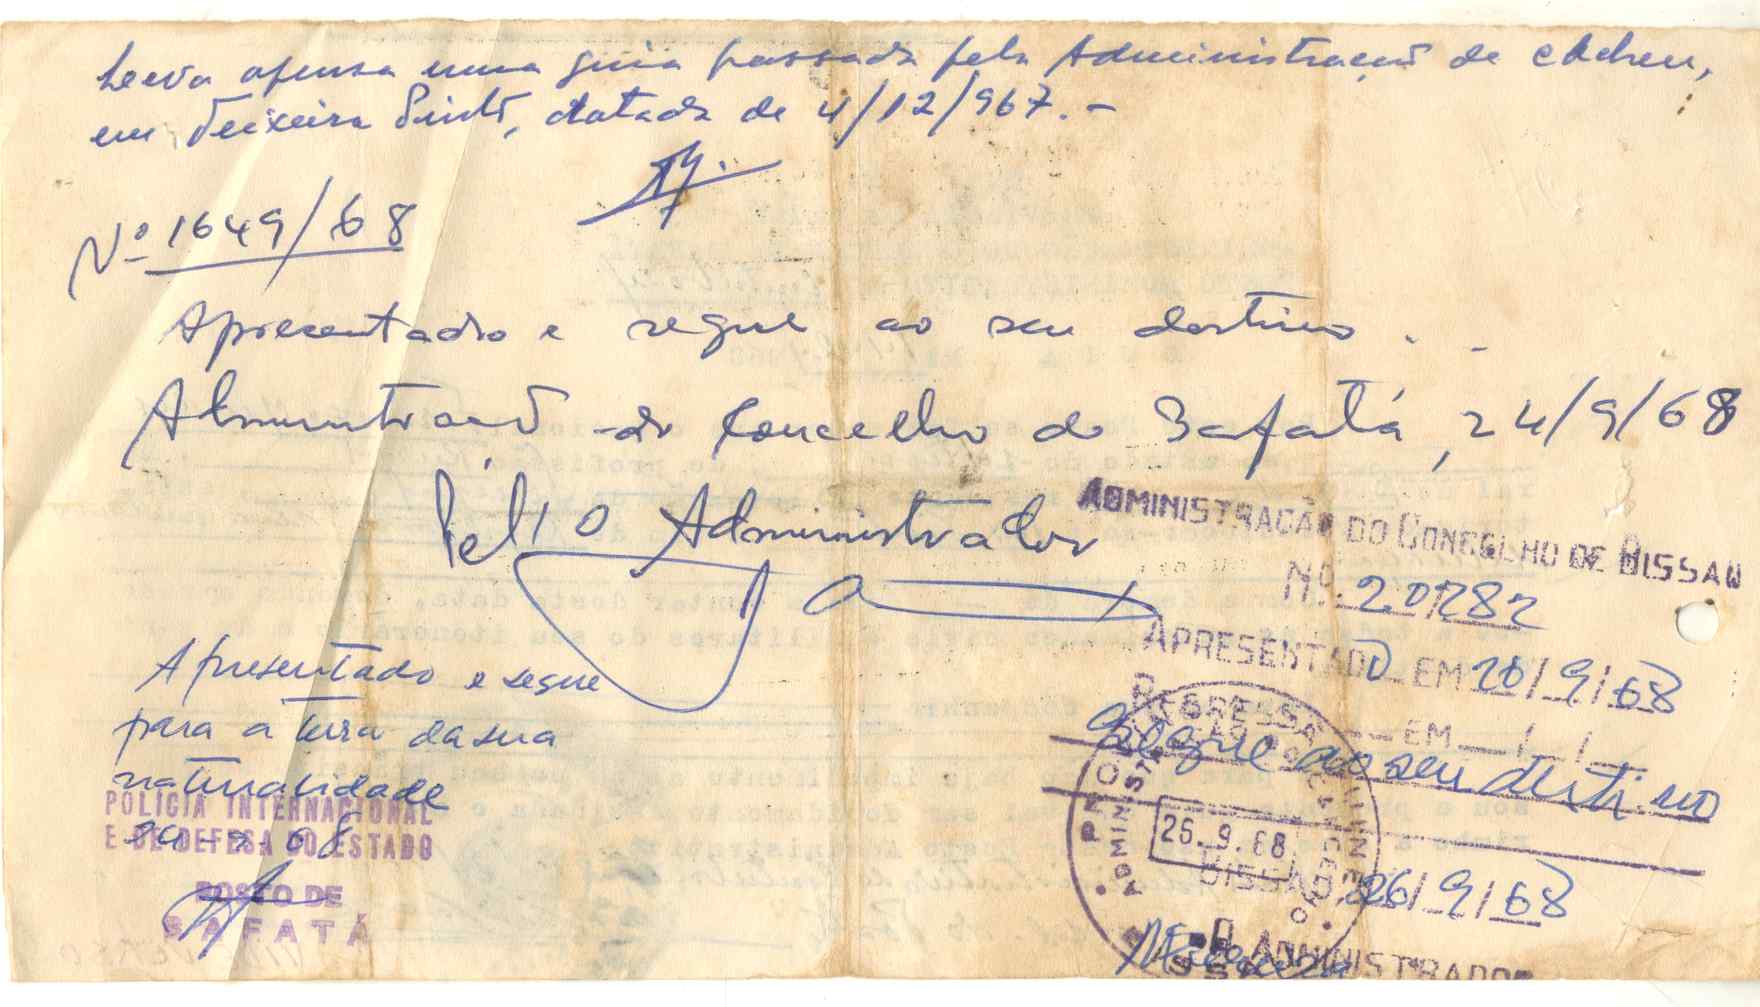 Leva apensa uma guia passada pela Administração de Cacheu,
em Teixeira Pinto, datada de 4/12/967.-
Nº 1649/68
Apresentado e segue ao seu destino.-
Administração do Concelho de Bafatá, 24/9/68
Pel' O Administrador
ADMINISTRAÇÃO DO CONCELHO DE BISSAU
Nº. 20782
APRESENTADO EM 26/9/68
REGRESSA EM / /
Segue ao seu destino
BISSAU, 26/9/68
O ADMINISTRADOR
26.9.68
Apresentado e segue
para a terra da sua
naturalidade
POLÍCIA INTERNACIONAL
E DE DEFESA DO ESTADO
POSTO DE
BAFATÁ